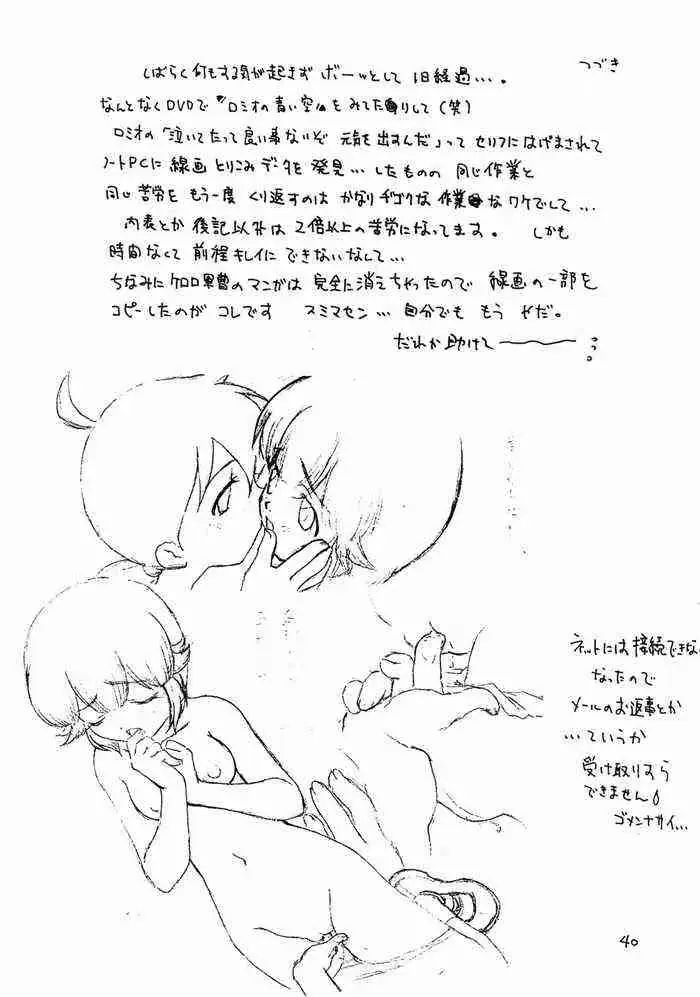 つづき
しばらく何もする気が起きず ボーッとして 1日経過…。
なんとなくDVDで『ロミオの青い空』をみてたりして(笑)
ロミオの「泣いてたって良い事ないぞ 元気を出すんだ」って セリフにはげまされて
ノートPCに 線画 とりこみデータを 発見… したものの 同じ作業と
同じ苦労を もう一度 くり返すのは かなりヂゴクな 作業なワケでして…
内表とか 後記以外は 2倍以上の苦労になってます。 しかも
時間なくて 前程キレイに できないなんて…
ちなみにケロロ軍曹のマンガは 完全に消えちゃったので 線画の一部を
コピーしたのが コレです スミマセン… 自分でも もう ヤだ。
だれか助けてーーーっ。
ネットには接続できな
なったので
メールのお返事とか
…ていうか
受け取りすら
できません
ゴメンナサイ…
40